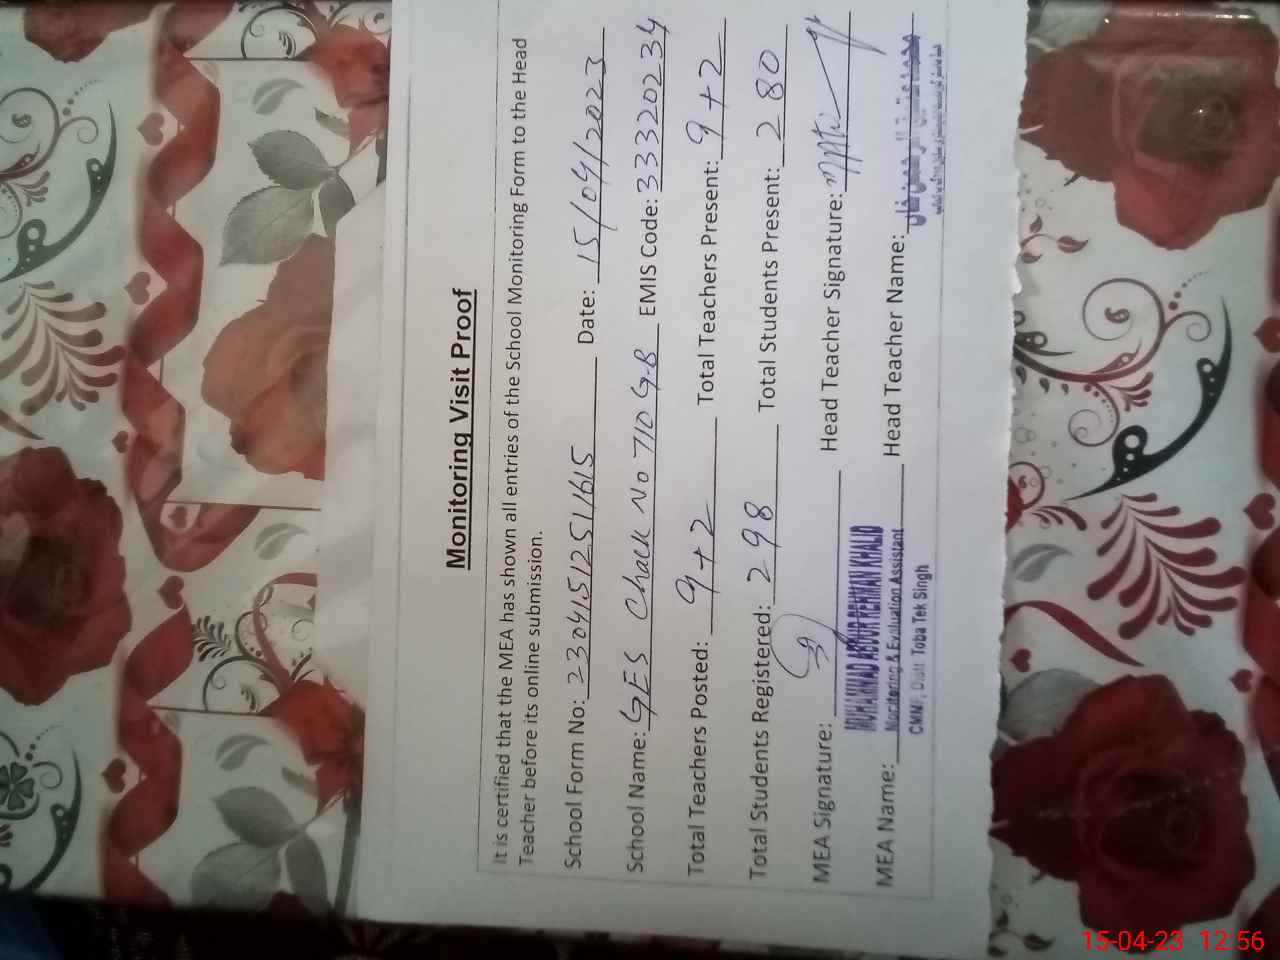 Monitoring Visit Proof
It is certified that the MEA has shown all entries of the School Monitoring Form to the Head
Teacher before its online submission.
School Form No: 23041512511615 Date: 15/04/2023
School Name: GES Chack No 710 G.B EMIS Code: 33320234
Total Teachers Posted: 9+2 Total Teachers Present: 9+2
Total Students Registered: 298 Total Students Present: 280
MEA Signature: Head Teacher Signature:
MUHAMMAD ABDUR REHMAN KHALID
MEA Name: Monitoring & Evaluation Assistant Head Teacher Name:
CMMF, Distt. Toba Tek Singh
15-04-23 12:56